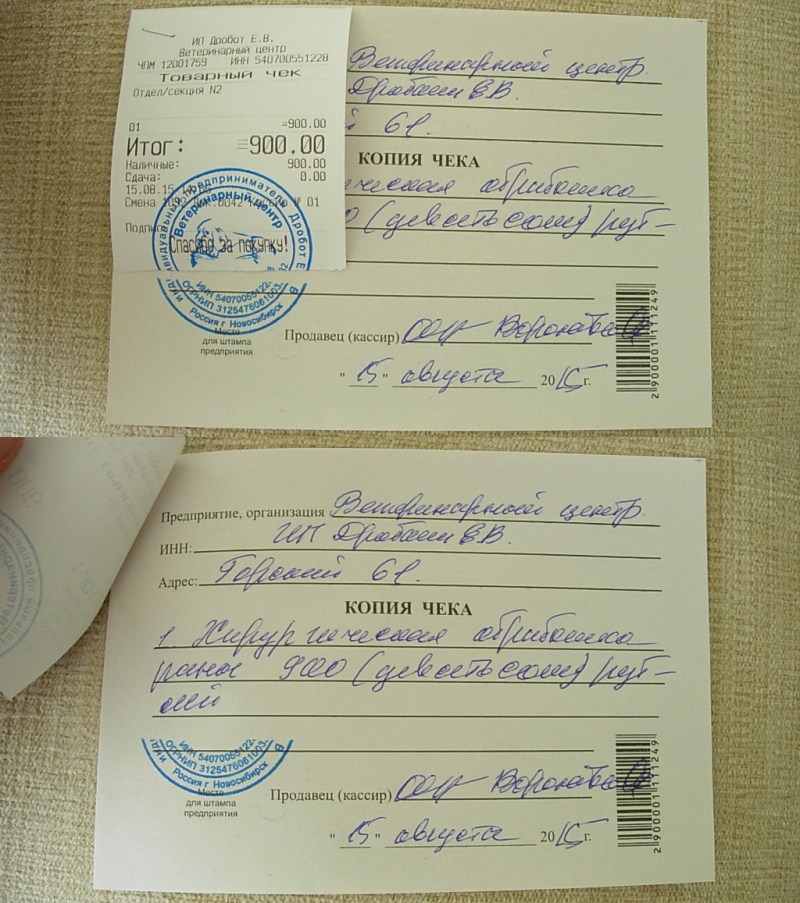 ИП Дробот Е.В.
Ветеринарный центр
ЧПМ 12001759 ИНН 540700551228
Товарный чек
Отдел/секция N2
01 =900.00
Итог: =900.00
Наличные: 900.00
Сдача: 0.00
15.08.15
Смена
№ 01
Спасибо за покупку!
Ветеринарный центр
ОГРНИП 3125476081003
Россия г Новосибирск
Ветеринарный центр
Дробот Е.В.
й 61.
КОПИЯ ЧЕКА
ическая обработка
0 (девятьсот) руб-
Место
для штампа
предприятия
Продавец (кассир)
" 15 " августа 2015г.
2 900001 171249
Предприятие, организация Ветеринарный центр
ИНН: ИП Дробот Е.В.
Адрес: Горский 61.
КОПИЯ ЧЕКА
1. Хирургическая обработка
раны 900 (девятьсот) руб-
лей
ИНН 54070055122
ОГРНИП 3125476081003
Россия г Новосибирск
Место
для штампа
предприятия
Продавец (кассир)
" 15 " августа 2015г.
2 900001 171249